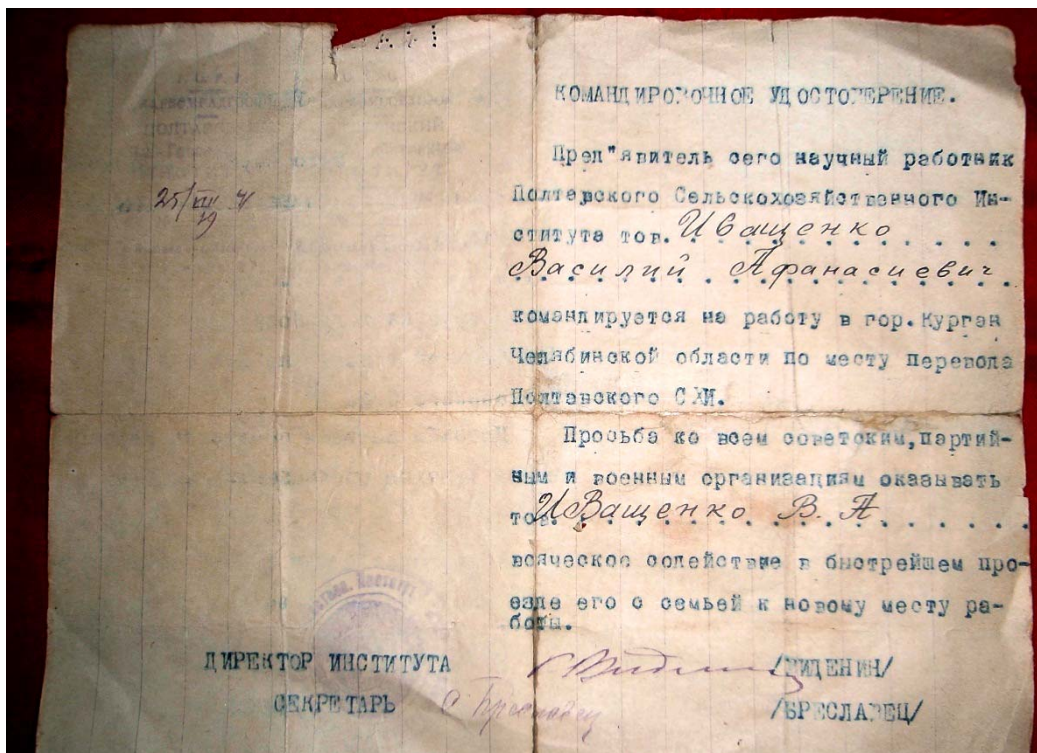 КОМАНДИРОВОЧНОЕ УДОСТОВЕРЕНИЕ.
Пред"явитель сего научный работник
Полтавского Сельскохозяйственного Ин-
25/VIII 41
19
ститута тов. Иващенко
Василий Афанасиевич
командируется на работу в гор.Курган
Челябинской области по месту перевода
Полтавского СХИ.
Просьба ко всем советским,партий-
ным и военным организациям оказывать
тов. Иващенко В. А.
всяческое содействие в быстрейшем про-
езде его с семьей к новому месту ра-
боты.
ДИРЕКТОР ИНСТИТУТА /ВИДЕНИН/
СЕКРЕТАРЬ /БРЕСЛАВЕЦ/